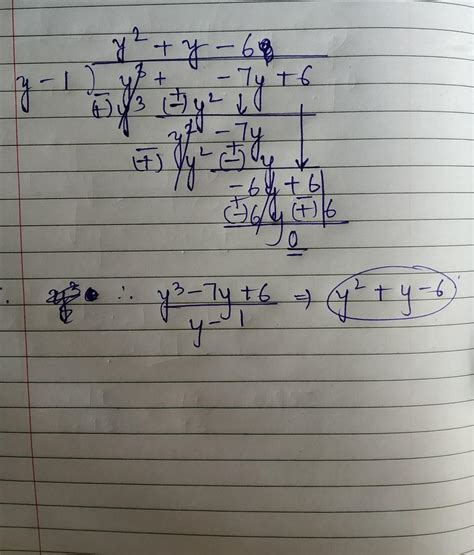 y² + y - 6
y - 1 ) y³ + - 7y + 6
(+) y³ (-) y²
- +
y² - 7y
(+) y² (-) y
- +
-6y + 6
(-) 6y (+) 6
+ -
0
∴ y³ - 7y + 6 / y - 1 ⇒ y² + y - 6